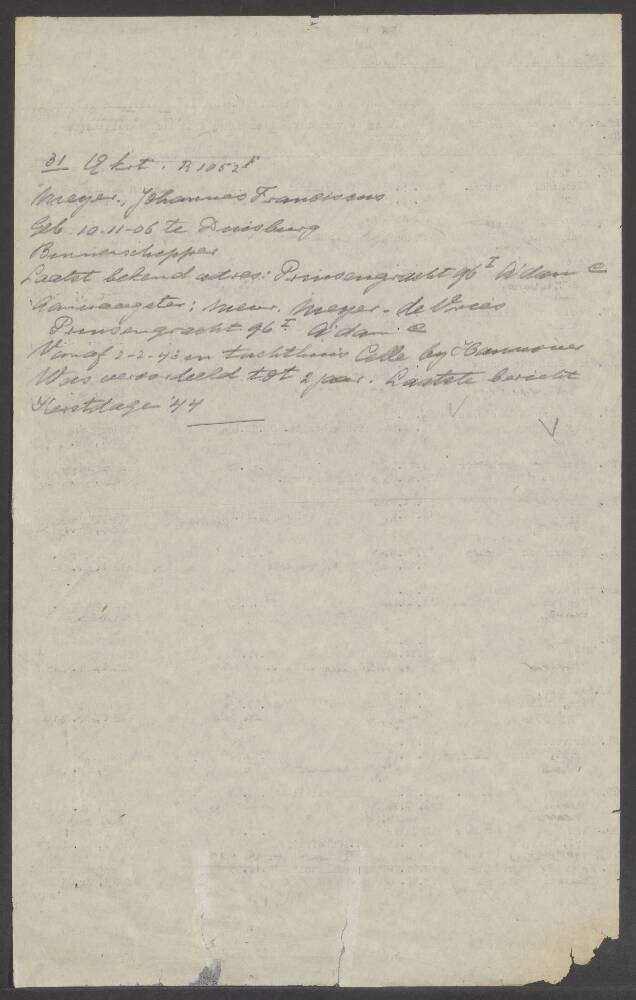 31 19 krt. R 1052
Meyer, Johannes Franciscus
Geb. 10-11-06 te Duisburg
Binnenschipper
Laatst bekend adres: Prinsengracht 96 I A'dam C
Aanvraagster: Mevr. Meyer-de Vries
Prinsengracht 96 I A'dam C
Vanaf 2-2-43 in tuchthuis Celle by Hannover
Was veroordeeld tot 2 jaar. Laatste bericht
Kerstdage '44